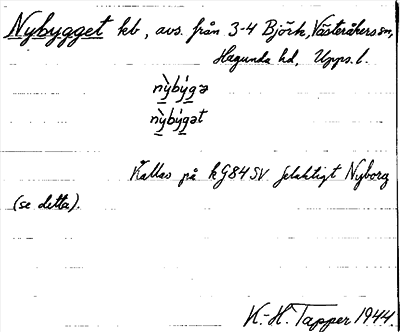 Nybygget kb, avs. från 3-4 Björk, Västeråkers sn,
Hagunda hd, Upps. l.
ny̆̀by̆́gə
ny̆̀by̆́gət
Kallas på kG84SV felaktigt Nyborg
(se detta).
K.-H. Tapper 1944.